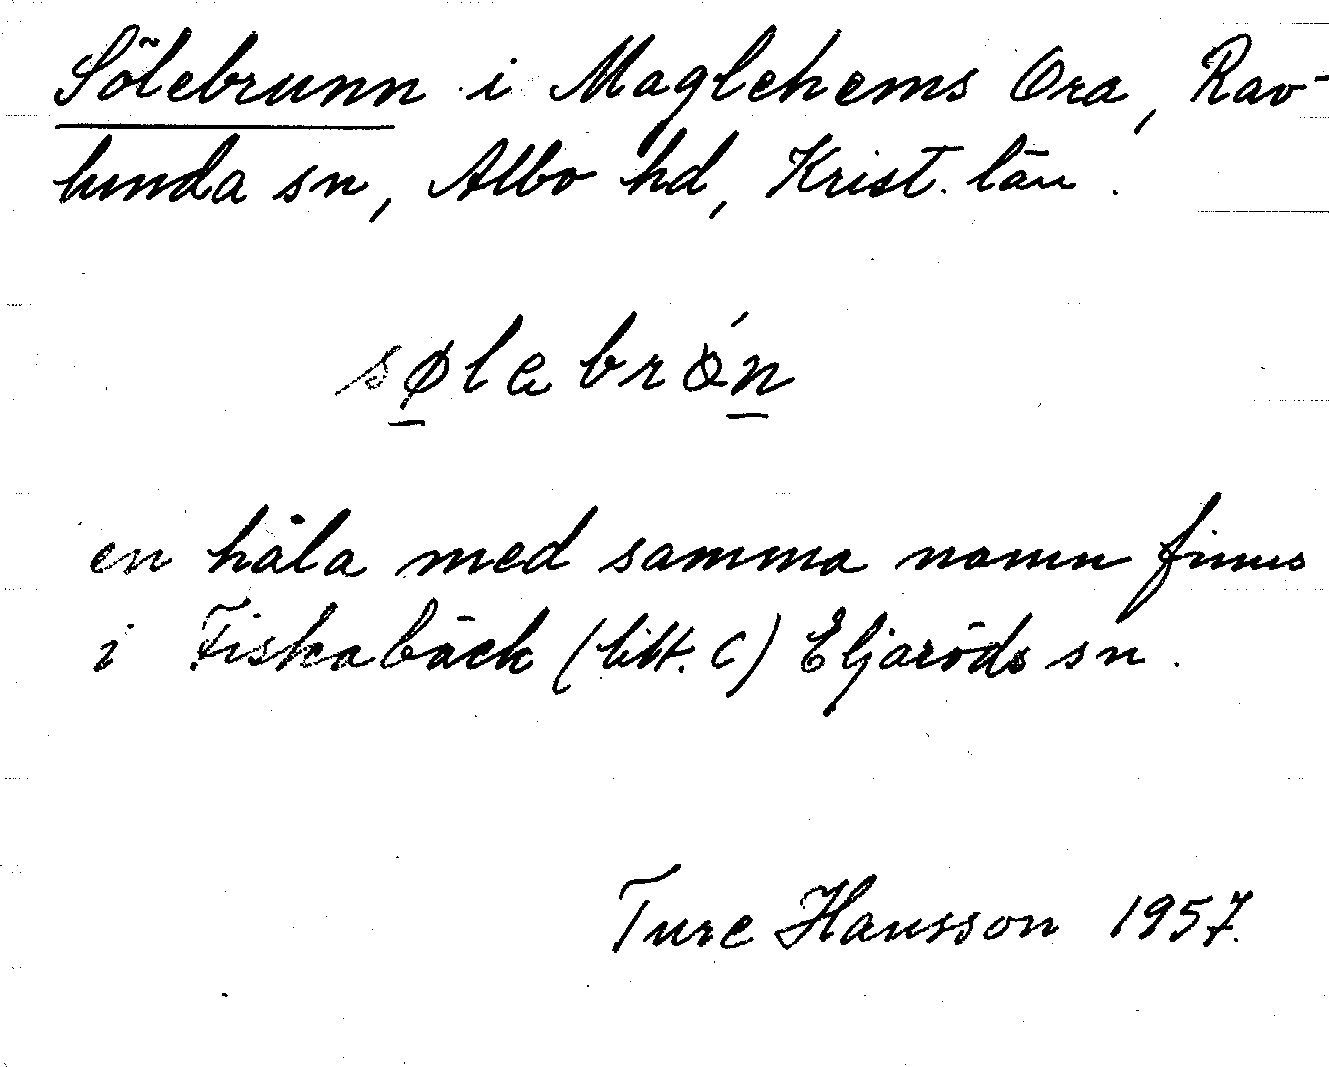 Sölebrunn i Maglehems Ora, Rav-
lunda sn, Albo hd, Krist. län.
søle brǿn
en håla med samma namn finns
i Fiskabäck (litt. C) Eljaröds sn.
Ture Hansson 1957.